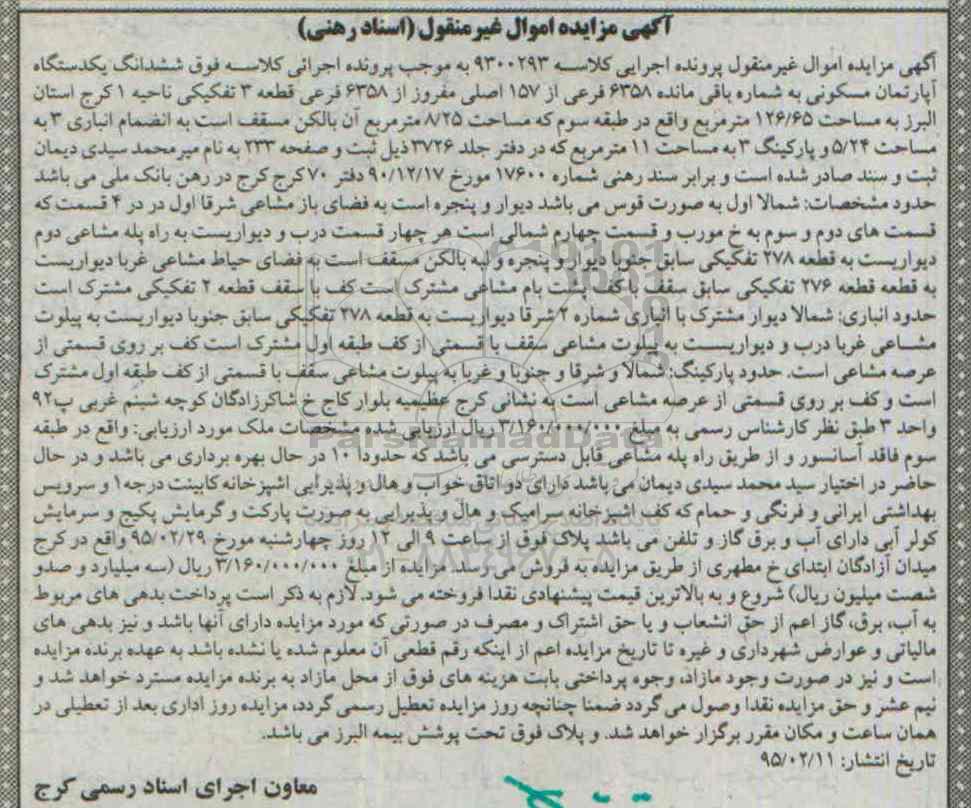 آگهی مزایده اموال غیرمنقول (اسناد رهنی)
آگهی مزایده اموال غیرمنقول پرونده اجرایی کلاسه ۹۳۰۰۲۹۳ به موجب پرونده اجرائی کلاسه فوق ششدانگ یکدستگاه
آپارتمان مسکونی به شماره باقی مانده ۶۳۵۸ فرعی از ۱۵۷ اصلی مفروز از ۶۳۵۸ فرعی قطعه ۳ تفکیکی ناحیه ۱ کرج استان
البرز به مساحت ۱۲۶/۶۵ مترمربع واقع در طبقه سوم که مساحت ۸/۲۵ مترمربع آن بالکن مسقف است به انضمام انباری ۳ به
مساحت ۵/۲۴ و پارکینگ ۳ به مساحت ۱۱ مترمربع که در دفتر جلد ۳۷۲۶ ذیل ثبت و صفحه ۲۳۳ به نام میرمحمد سیدی دیمان
ثبت و سند صادر شده است و برابر سند رهنی شماره ۱۷۶۰۰ مورخ ۹۰/۱۲/۱۷ دفتر ۷۰ کرج کرج در رهن بانک ملی می باشد
حدود مشخصات: شمالا اول به صورت قوس می باشد دیوار و پنجره است به فضای باز مشاعی شرقا اول در در ۴ قسمت که
قسمت های دوم و سوم به خ مورب و قسمت چهارم شمالی است هر چهار قسمت درب و دیواریست به راه پله مشاعی دوم
دیواریست به قطعه ۲۷۸ تفکیکی سابق جنوبا دیوار و پنجره و لبه بالکن مسقف است به فضای حیاط مشاعی غربا دیواریست
به قطعه قطعه ۲۷۶ تفکیکی سابق سقف با کف پشت بام مشاعی مشترک است کف با سقف قطعه ۲ تفکیکی مشترک است
حدود انباری: شمالا دیوار مشترک با انباری شماره ۲ شرقا دیواریست به قطعه ۲۷۸ تفکیکی سابق جنوبا دیواریست به پیلوت
مشاعی غربا درب و دیواریست به پیلوت مشاعی سقف با قسمتی از کف طبقه اول مشترک است کف بر روی قسمتی از
عرصه مشاعی است. حدود پارکینگ: شمالا و شرقا و جنوبا و غربا به پیلوت مشاعی سقف با قسمتی از کف طبقه اول مشترک
است و کف بر روی قسمتی از عرصه مشاعی است به نشانی کرج عظیمیه بلوار کاج خ شاکرزادگان کوچه شبنم غربی پ۹۲
واحد ۳ طبق نظر کارشناس رسمی به مبلغ ۳/۱۶۰/۰۰۰/۰۰۰ ریال ارزیابی شده مشخصات ملک مورد ارزیابی: واقع در طبقه
سوم فاقد آسانسور و از طریق راه پله مشاعی قابل دسترسی می باشد که حدودا ۱۰ در حال بهره برداری می باشد و در حال
حاضر در اختیار سید محمد سیدی دیمان می باشد دارای دو اتاق خواب و هال و پذیرایی اشپزخانه کابینت درجه۱ و سرویس
بهداشتی ایرانی و فرنگی و حمام که کف اشپزخانه سرامیک و هال و پذیرایی به صورت پارکت و گرمایش پکیج و سرمایش
کولر آبی دارای آب و برق گاز و تلفن می باشد پلاک فوق از ساعت ۹ الی ۱۲ روز چهارشنبه مورخ ۹۵/۰۲/۲۹ واقع در کرج
میدان آزادگان ابتدای خ مطهری از طریق مزایده به فروش می رسد. مزایده از مبلغ ۳/۱۶۰/۰۰۰/۰۰۰ ریال (سه میلیارد و صدو
شصت میلیون ریال) شروع و به بالاترین قیمت پیشنهادی نقدا فروخته می شود. لازم به ذکر است پرداخت بدهی های مربوط
به آب، برق، گاز اعم از حق انشعاب و یا حق اشتراک و مصرف در صورتی که مورد مزایده دارای آنها باشد و نیز بدهی های
مالیاتی و عوارض شهرداری و غیره تا تاریخ مزایده اعم از اینکه رقم قطعی آن معلوم شده یا نشده باشد به عهده برنده مزایده
است و نیز در صورت وجود مازاد، وجوه پرداختی بابت هزینه های فوق از محل مازاد به برنده مزایده مسترد خواهد شد و
نیم عشر و حق مزایده نقدا وصول می گردد ضمنا چنانچه روز مزایده تعطیل رسمی گردد، مزایده روز اداری بعد از تعطیلی در
همان ساعت و مکان مقرر برگزار خواهد شد. و پلاک فوق تحت پوشش بیمه البرز می باشد.
تاریخ انتشار: ۹۵/۰۲/۱۱
معاون اجرای اسناد رسمی کرج
ParsNamadData